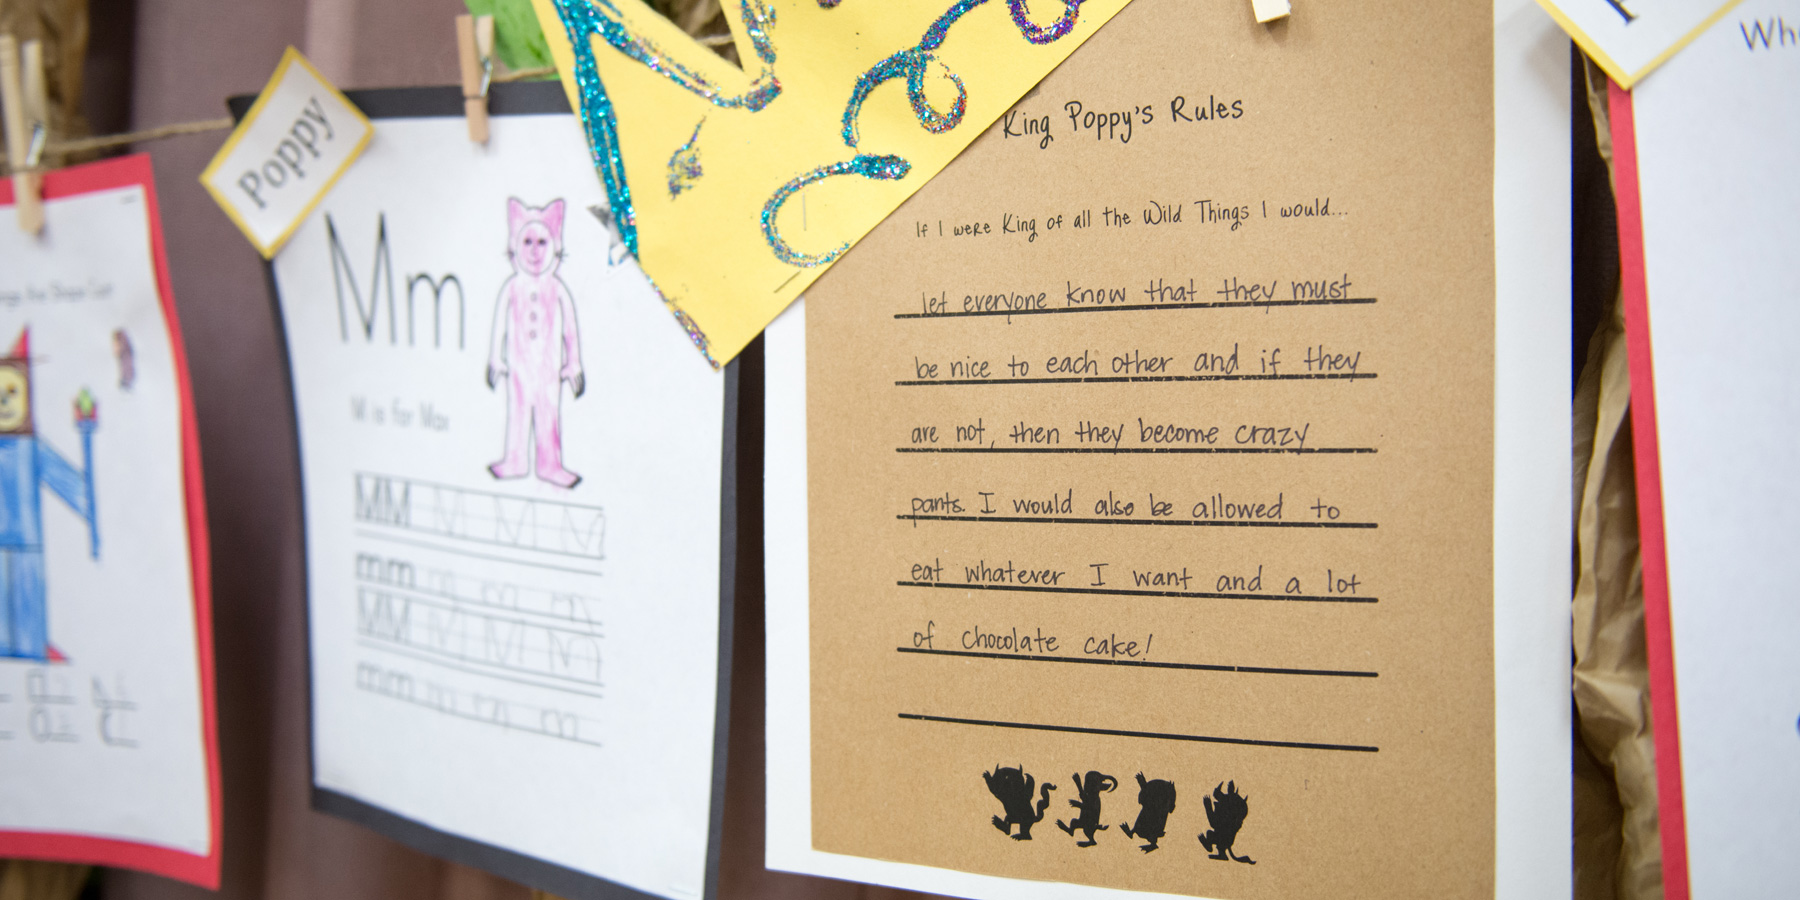 Poppy
Mm
M is for Max
MM M M M
mm m m m
MM M M M
mm m m m
King Poppy's Rules
If I were King of all the Wild Things I would...
let everyone know that they must
be nice to each other and if they
are not, then they become crazy
pants. I would also be allowed to
eat whatever I want and a lot
of chocolate cake!